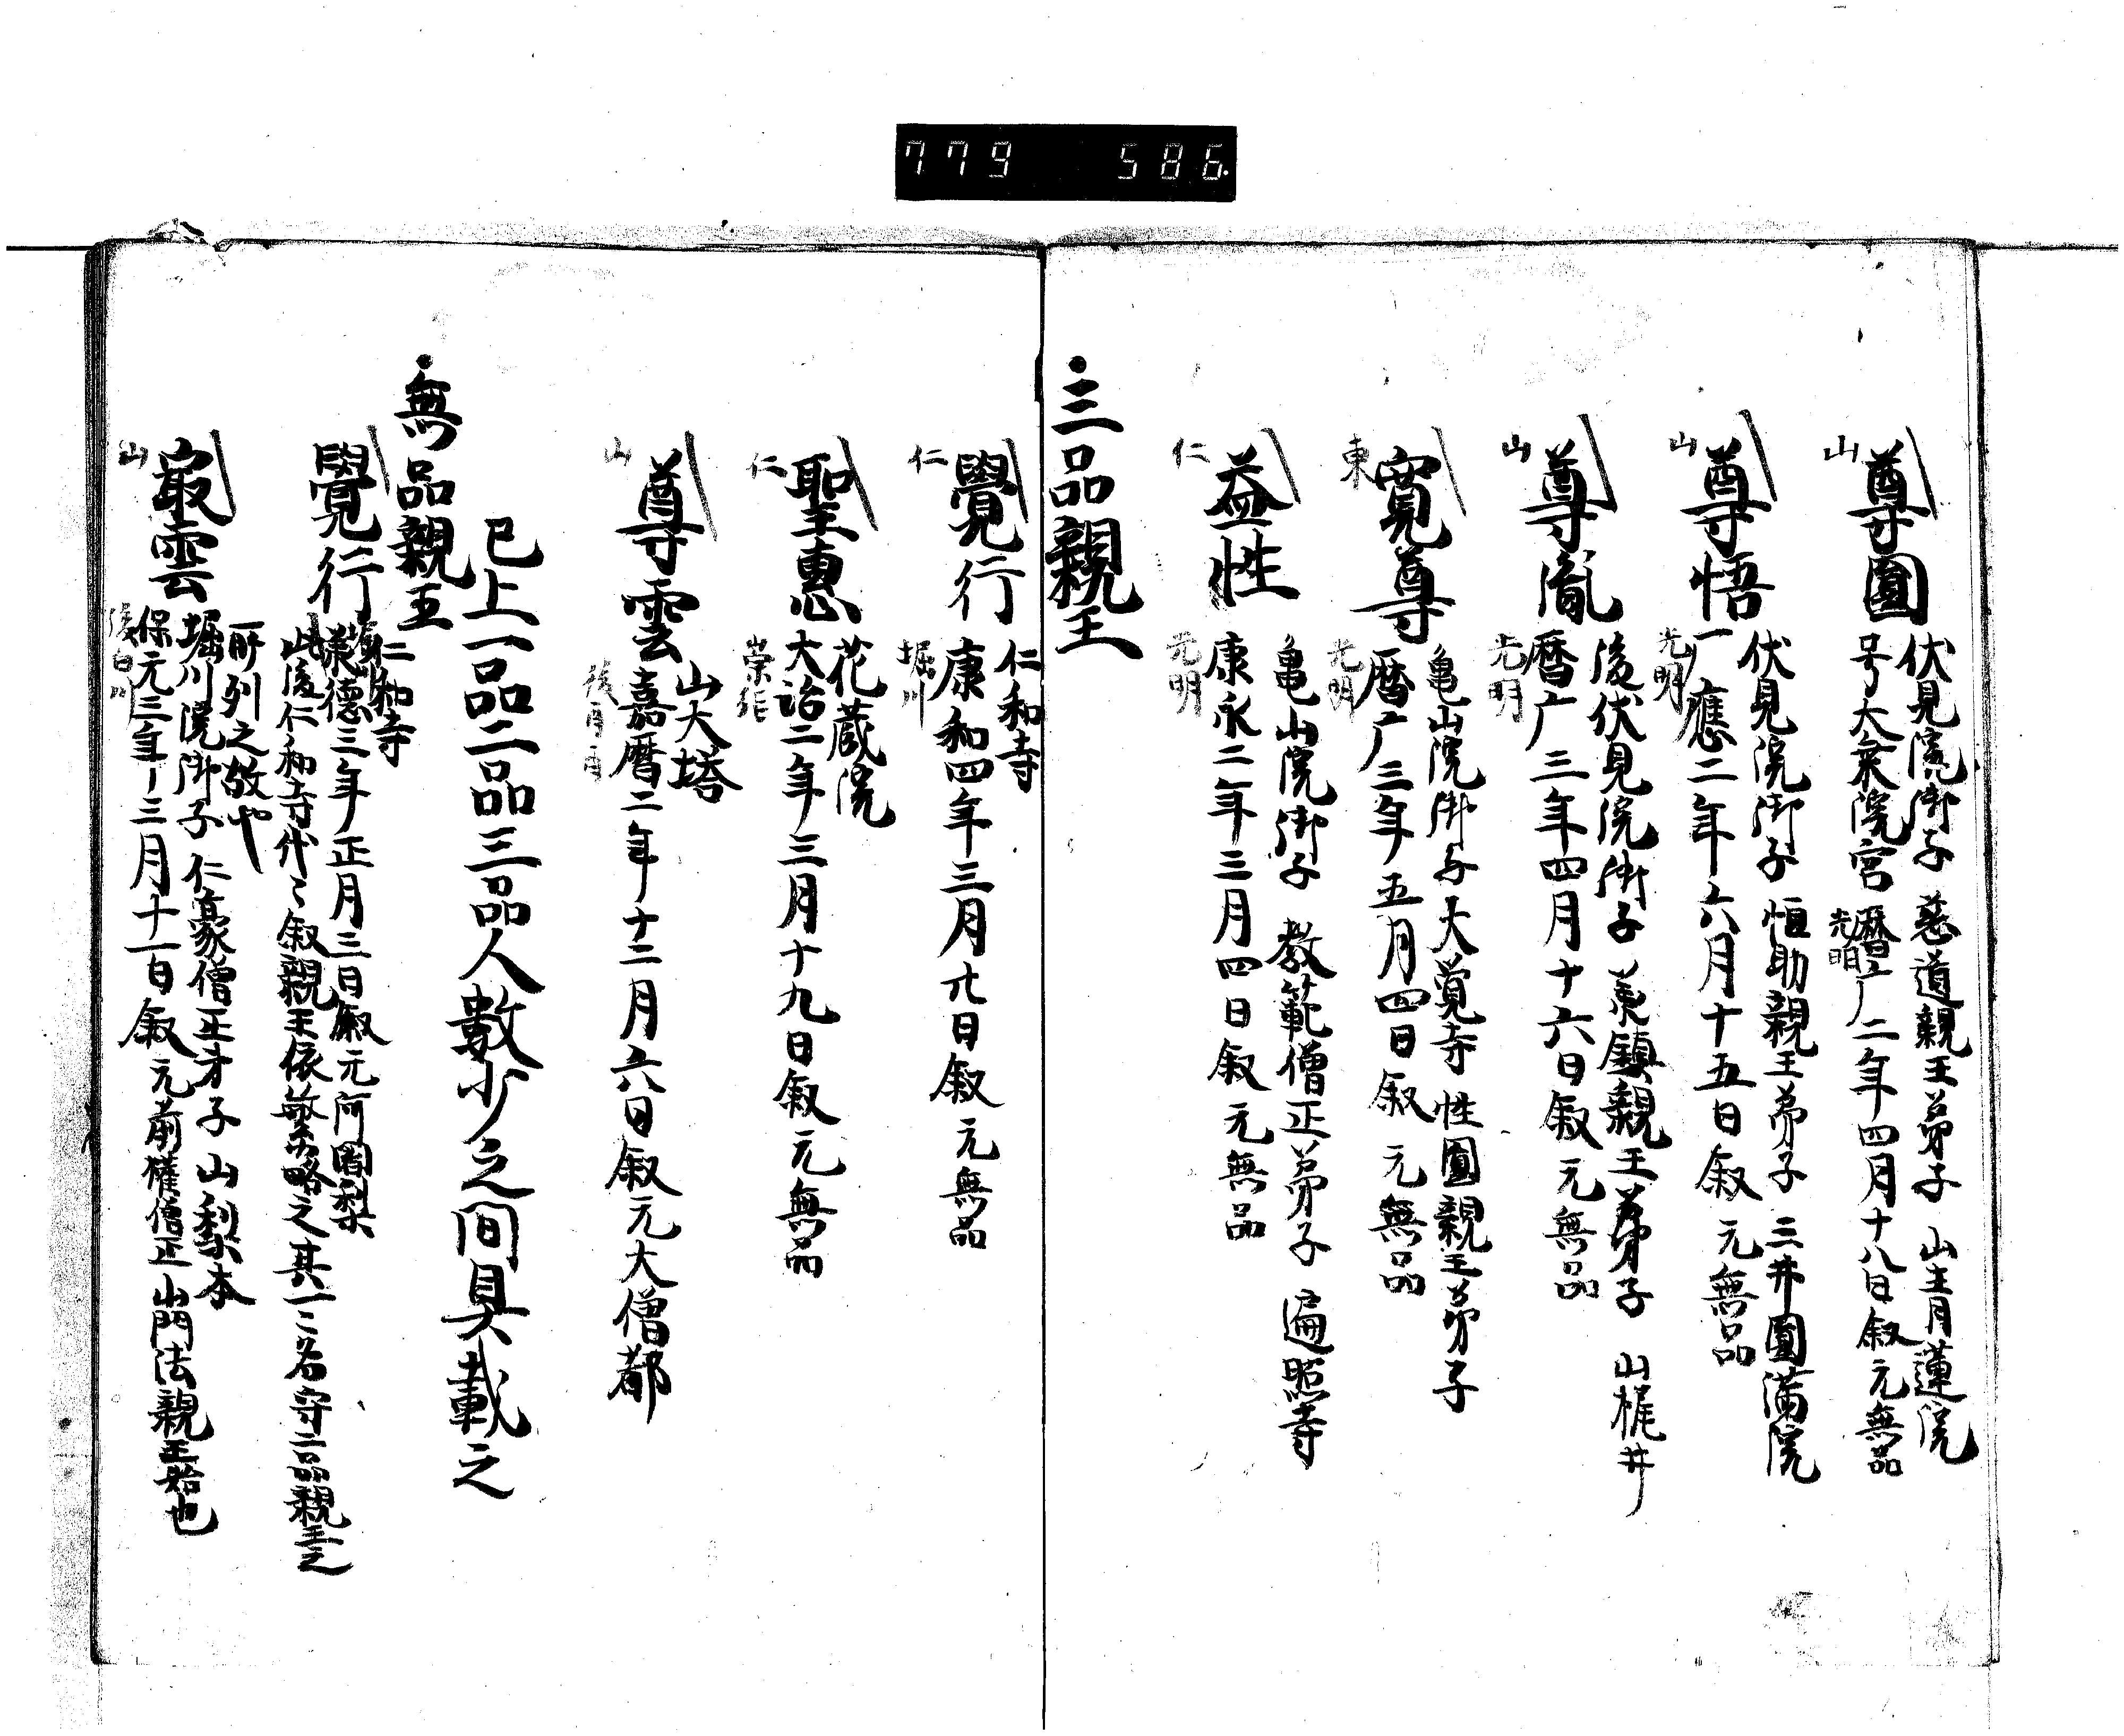 779 586
山
尊圓
伏見院御子 慈道親王弟子 山青蓮院
号大乗院宮 暦广二年四月十八日叙 元無品
光明
山
尊悟
伏見院御子 恒助親王弟子 三井圓満院
一應二年六月十五日叙 元無品
光明
山
尊胤
後伏見院御子 承鎮親王弟子 山梶井
暦广三年四月十六日叙 元無品
光明
東
寛尊
亀山院御子 大覚寺 性圓親王弟子
暦广三年五月四日叙 元無品
光明
仁
益性
亀山院御子 教範僧正弟子 遍照寺
康永二年三月四日叙 元無品
光明
三品親王
仁
覺行
仁和寺
康和四年三月六日叙 元無品
堀川
仁
聖惠
花蔵院
大治二年三月十九日叙 元無品
崇
山
尊雲
山大塔
嘉暦二年十二月六日叙 元大僧都
後
已上一品二品三品人數少之間具載之
無品親王
覺行
仁和寺
承德三年正月三日叙 元阿闍梨
此後仁和寺代々叙親王依繁略之其一二名守二品親王之
所列之故也
山
最雲
堀川院御子 仁豪僧正才子 山梨本
保元三年三月十一日叙 元前權僧正 山門法親王始也
後白川